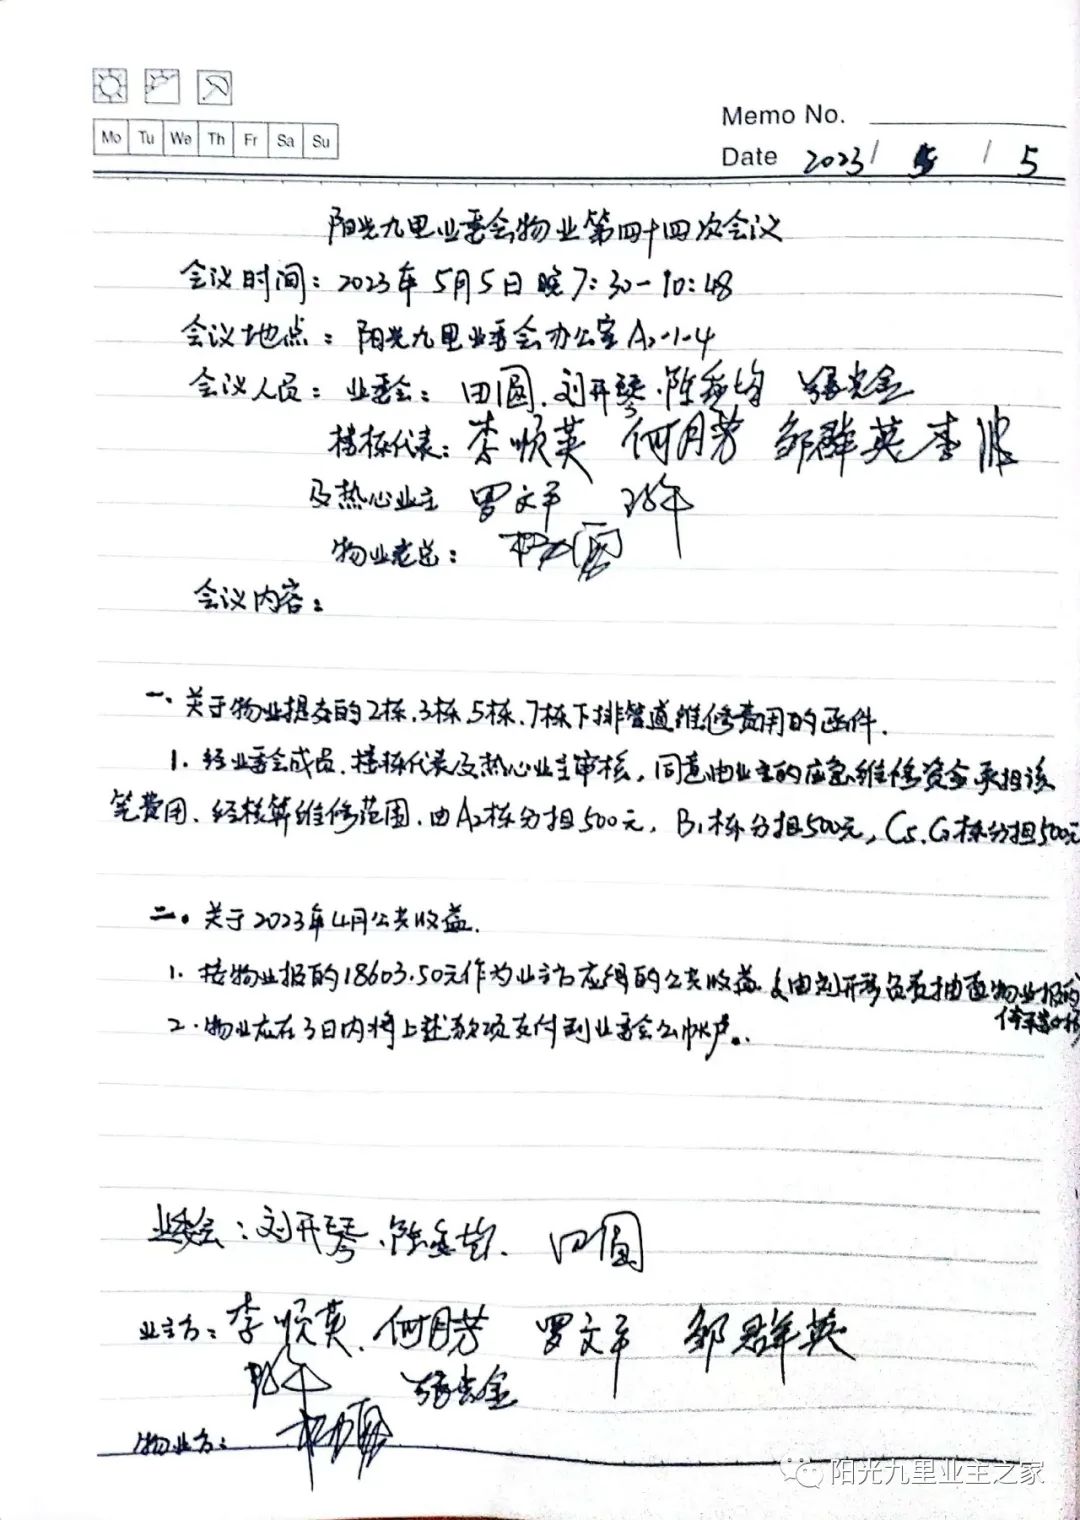 Memo No.
Mo Tu We Th Fr Sa Su
Date 2023 / 5 / 5
阳光九里业委会物业第四十四次会议
会议时间：2023年5月5日晚7:30-10:48
会议地点：阳光九里业委会办公室A2-1-4
会议人员：业委会：田圆、刘开琴、陈 张光金
楼栋代表：李顺英 何月芳 邹群英 李波
及热心业主 罗文平
物业老总：
会议内容：
一、关于物业提交的2栋、3栋、5栋、7栋下排管道维修费用的函件。
1、经业委会成员、楼栋代表及热心业主审核，同意由业主的应急维修资金承担该
笔费用、经核算维修范围、由A2栋分担500元，B1栋分担500元，C5、G栋分担500元
二、关于2023年4月公共收益。
1、按物业报的18603.50元作为业主方应得的公共收益，由刘开琴负责抽查物业报的
停车
2、物业应在3日内将上述款项支付到业委会公帐户。
业委会：刘开琴、陈 田圆
业主方：李顺英、何月芳 罗文平 邹群英
张光金
物业方：
阳光九里业主之家